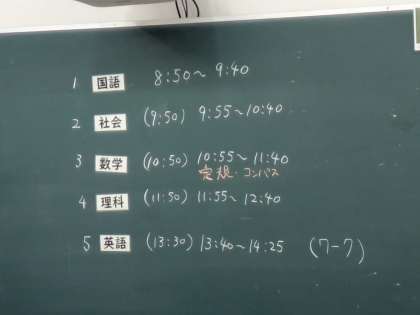 1 国語 8:50~ 9:40
2 社会 (9:50) 9:55~10:40
3 数学 (10:50) 10:55~11:40
定規・コンパス
4 理科 (11:50) 11:55~12:40
5 英語 (13:30) 13:40~14:25 (7-7)